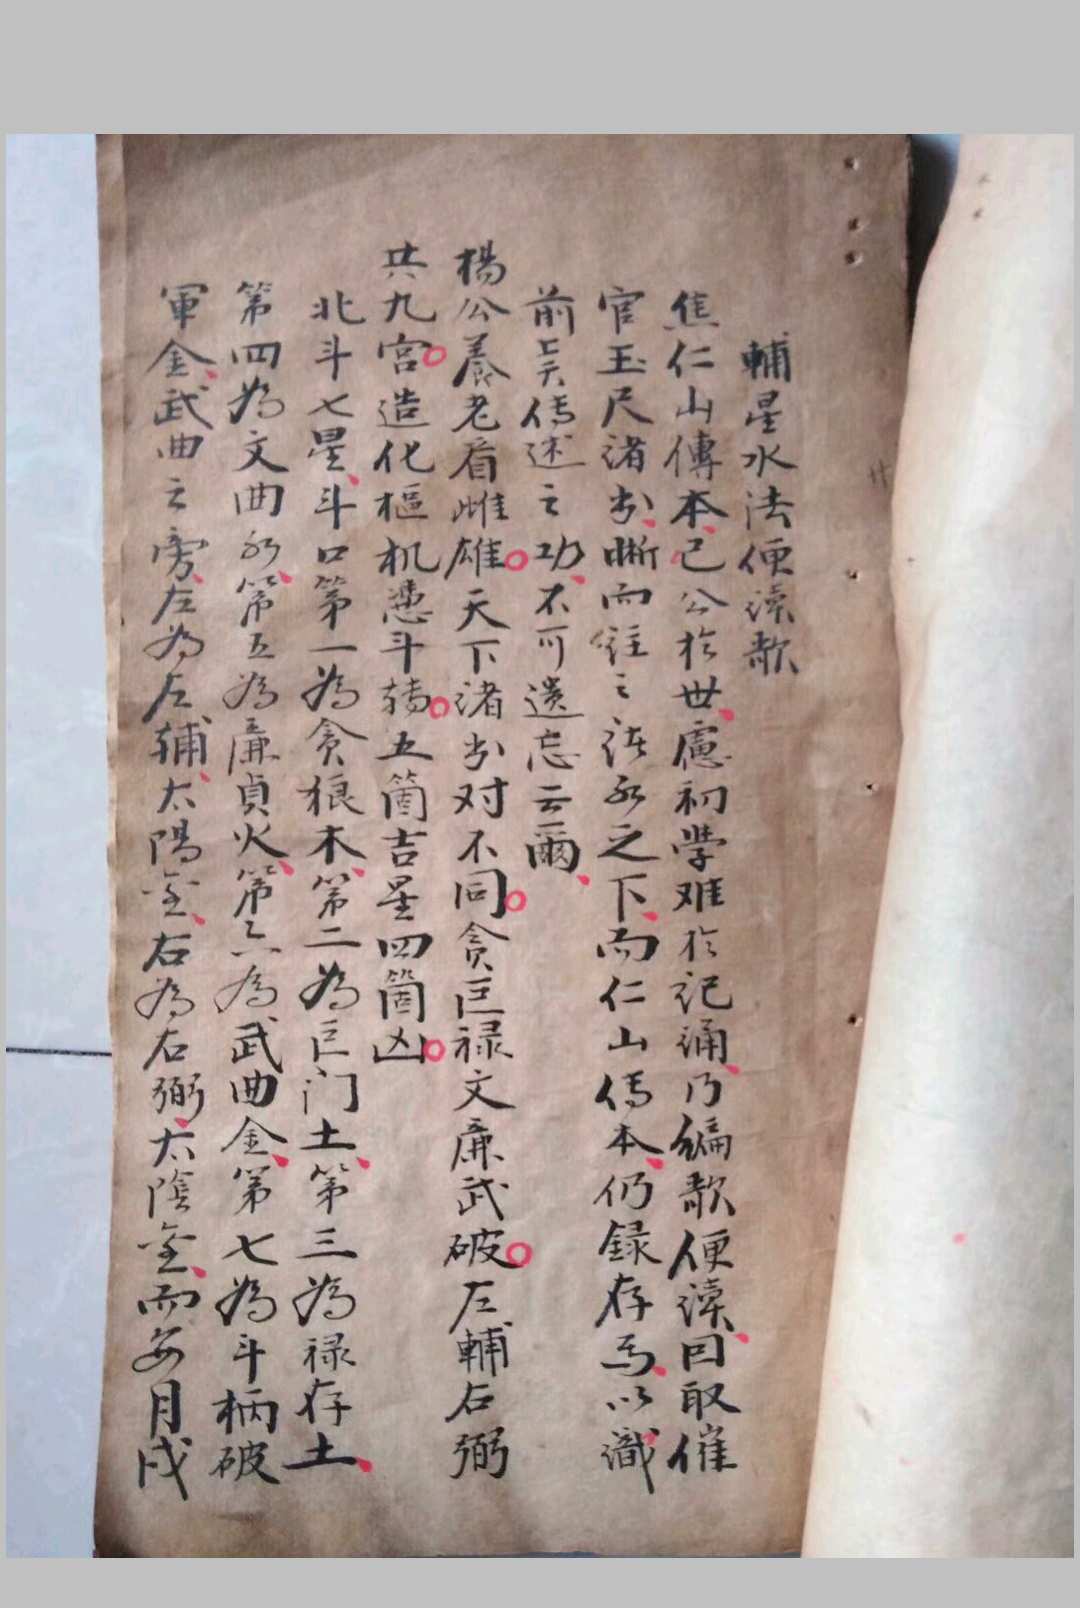 輔星水法便渎歌
焦仁山傳本已公於世慮初学难於记诵乃编歌便渎因取催
官玉尺渚书晰而註之讱於之下而仁山传本仍録存焉以識
前吴传述之功不可遗忘云爾
楊公養老看雌雄天下渚书对不同贪巨禄文廉武破左輔右弼
共九宫造化樞机憑斗转五箇吉星四箇凶
北斗七星斗口第一為贪狼木第二為巨门土第三為禄存土
第四為文曲水第五為廉貞火第六為武曲金第七為斗柄破
軍金武曲之旁左為左辅太陽金右為右弼太陰金而每月戌